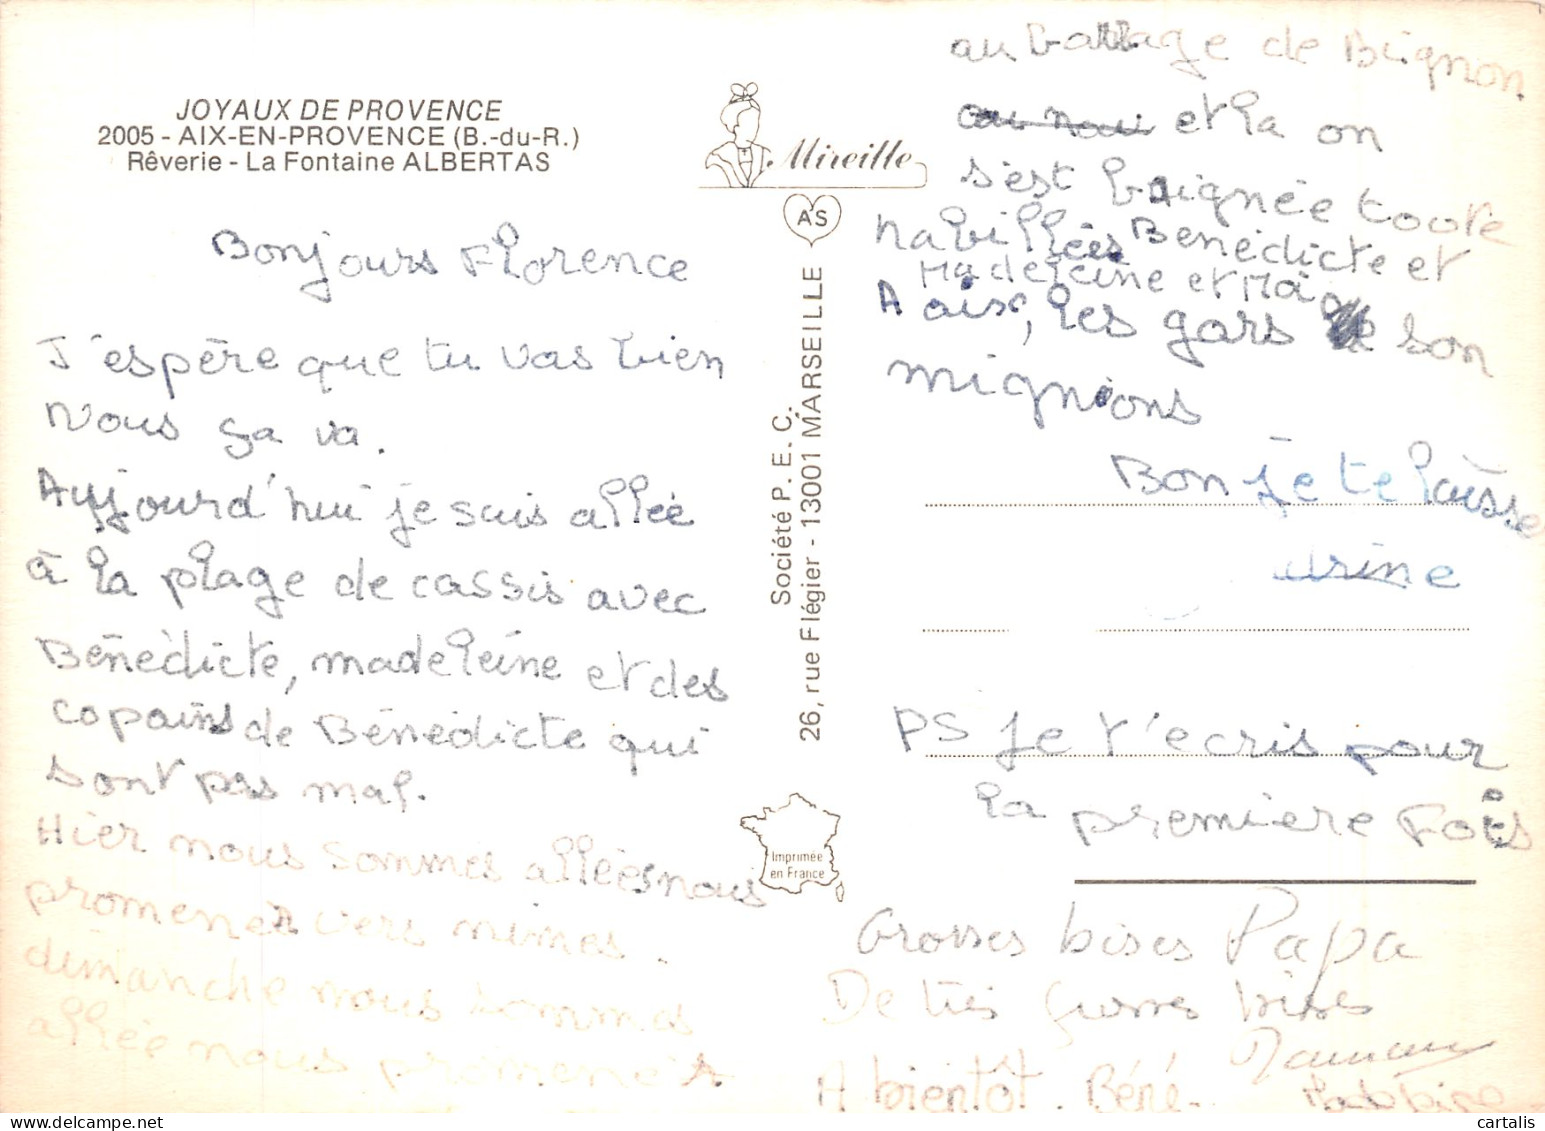 JOYAUX DE PROVENCE
2005 - AIX-EN-PROVENCE (B.-du-R.)
Rêverie - La Fontaine ALBERTAS
Bonjours Florence
J'espère que tu vas bien
Nous ça va.
Aujourd'hui je suis allée
à la plage de cassis avec
Bénédicte, madeleine et des
copains de Bénédicte qui
sont pas mal.
Hier nous sommes allées nous
promener vers nimes.
dimanche nous sommes
allée nous promener
Mireille
AS
Société P. E. C.
26, rue Flégier - 13001 MARSEILLE
Imprimée
en France
au barrage de Bignon
et la on
s'est baignée toute
habillées Bénédicte et
Madeleine et Mà
A aix, les gars son
mignions
Bon je te laisse
drine
PS Je t'ecris pour
la premiere Fois
Grosses bises Papa
De très grosses bises
Maman
A bientôt. Béné.
Madeleine
cartalis